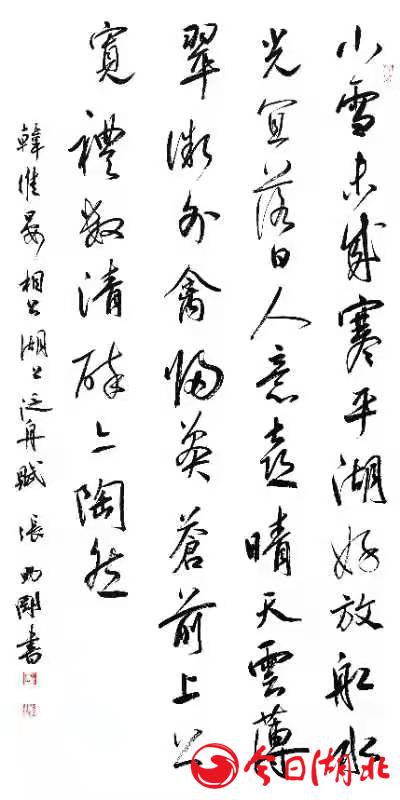 小雪未成寒平湖好放船水
光宜落日人意喜晴天雲薄
翠微外禽歸莽蒼前上公
寬禮數清醉亦陶然
韓維晏相公湖上泛舟賦 張剛書
今日湖北